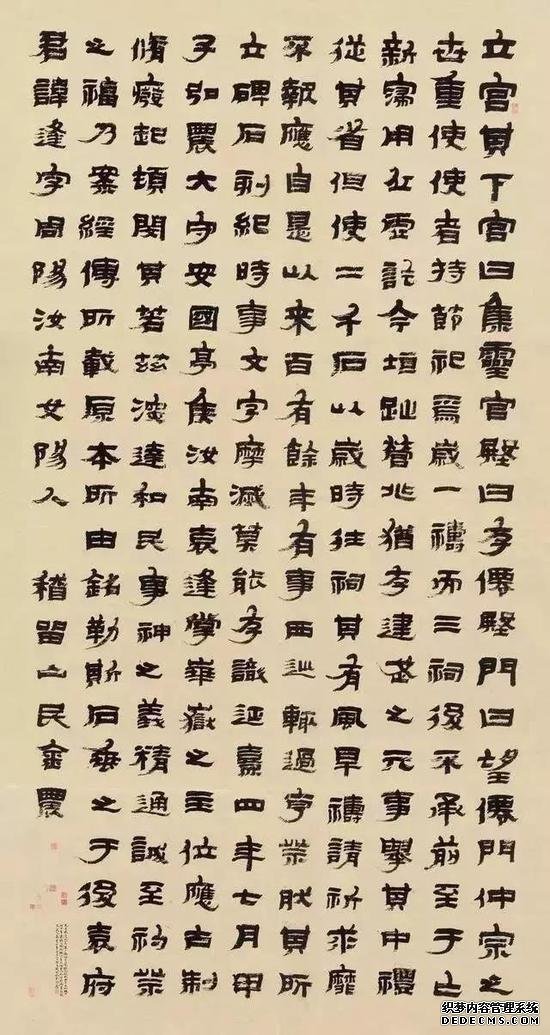 立宮其下宮曰集靈宮殿曰存僊殿門曰望僊門仲宗之
世重使使者持節祀焉歲一禱而三祠後不承前至于亡
新寖用丘虛訖今垣趾營兆猶存建武之元事舉其中禮
從其省但使二千石以歲時往祠其有風旱禱請祈求靡
不報應自是以來百有餘年有事西巡輒過亨祭然其所
立碑石刻紀時事文字摩滅莫能存識延熹四年七月甲
子弘農大守安國亭侯汝南袁逢掌華嶽之主位應古制
脩廢起頓閔其若茲深達和民事神之義精通誠至礿祭
之福乃案經傳所載原本所由銘勒斯石垂之于後袁府
君諱逢字周陽汝南女陽人 稽留山民金農
织梦内容管理系统
DEDECMS.COM